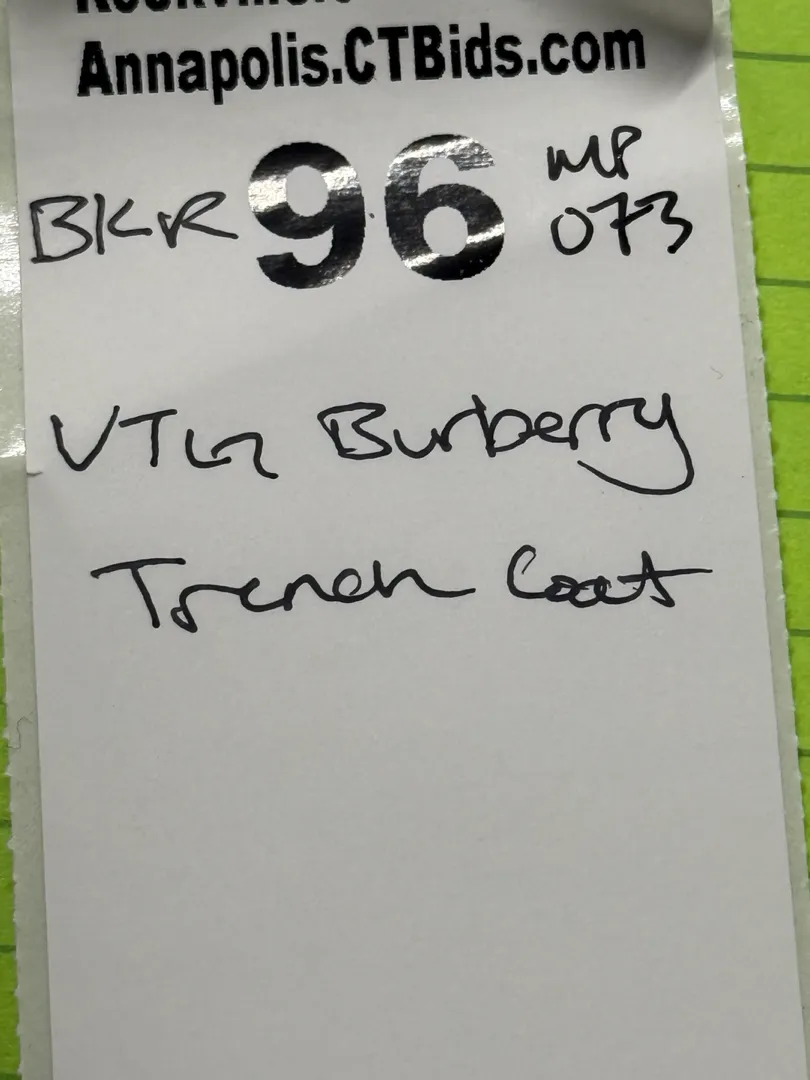 Annapolis.CTBids.com
BKR 96 MP
073
Burberry
Trench Coat